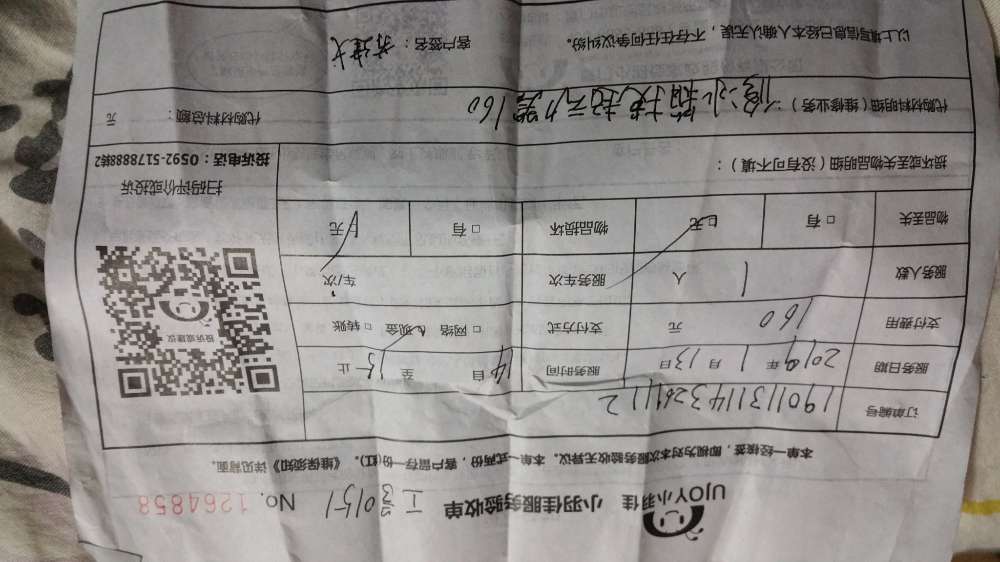 UJOY小羽佳 小羽佳服务验收单 工3015-1 No. 1264858
本单一经核签，即视为对本次服务验收无异议。本单一式两份，客户留存一份(红)。《维保须知》详见背面。
订单编号 190113114326111 2
服务日期 2019 年 1 月 13 日 服务时间 14 自 至 15 止
支付费用 160 元 支付方式 □ 网络 现金 □ 转账
服务人数 1 人 服务车次 车/次
物品丢失 □ 有 □ 无 物品损坏 □ 有 □ 无
投诉或建议
扫码评价或投诉
投诉电话：0592-5178888转2
损坏或丢失物品明细（没有可不填）：
代购材料明细（维修业务）：修冰箱换起动器160
代购材料总额： 元
以上填写信息已经本人确认无误，不存在任何争议纠纷。 客户签名：